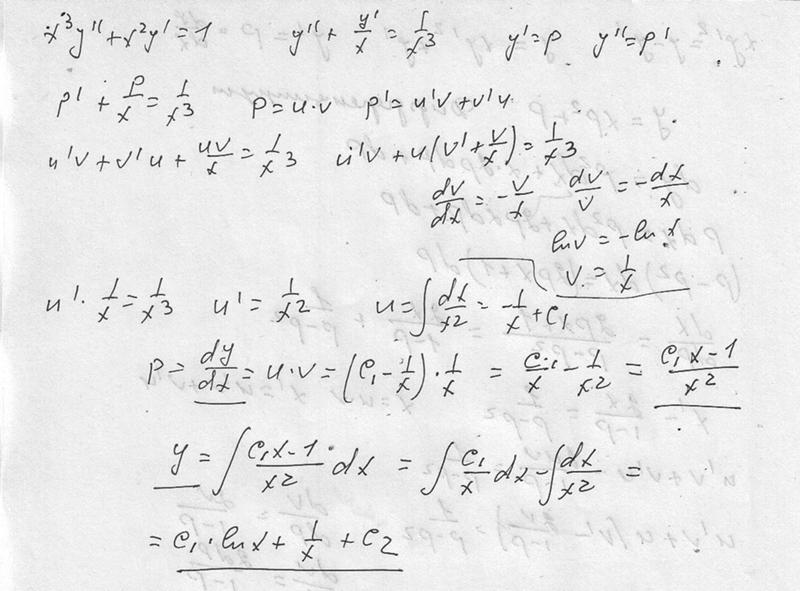 x³y'' + x²y' = 1   y'' + y'/x = 1/x³   y' = p   y'' = p'
p' + p/x = 1/x³   p = u·v   p' = u'v + v'u
u'v + v'u + uv/x = 1/x³   u'v + u(v' + v/x) = 1/x³
dv/dx = -v/x   dv/v = -dx/x
ln v = -ln x
v = 1/x
u' · 1/x = 1/x³   u' = 1/x²   u = ∫ dx/x² = -1/x + C₁
p = dy/dx = u·v = (C₁ - 1/x) · 1/x = C₁/x - 1/x² = (C₁x - 1)/x²
y = ∫ (C₁x - 1)/x² dx = ∫ C₁/x dx - ∫ dx/x² =
= C₁ · ln x + 1/x + C₂